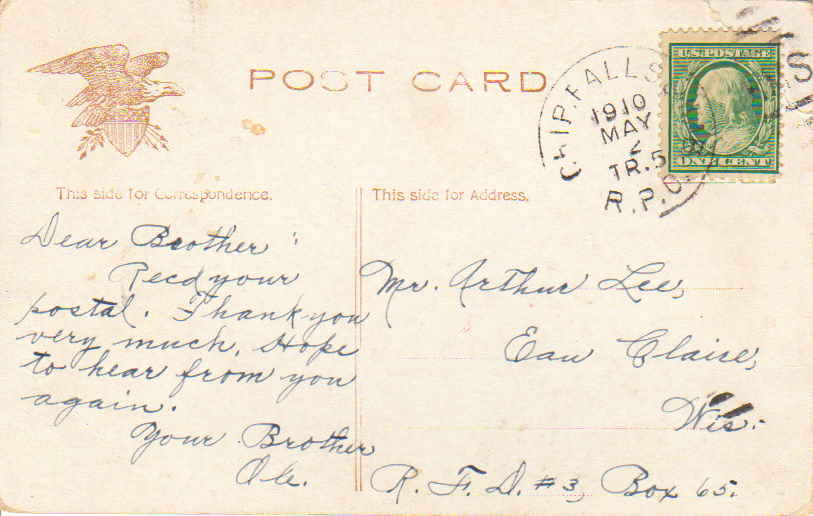 POST CARD
CHIP. FALLS
1910
MAY
2
TR. 5
R.P.O.
U.S. POSTAGE
ONE CENT
This side for Correspondence.
This side for Address.
Dear Brother:
Recd your
postal. Thank you
very much. Hope
to hear from you
again.
Your Brother
Ole.
Mr. Arthur Lee,
Eau Claire,
Wis.
R. F. D. #3, Box 65.